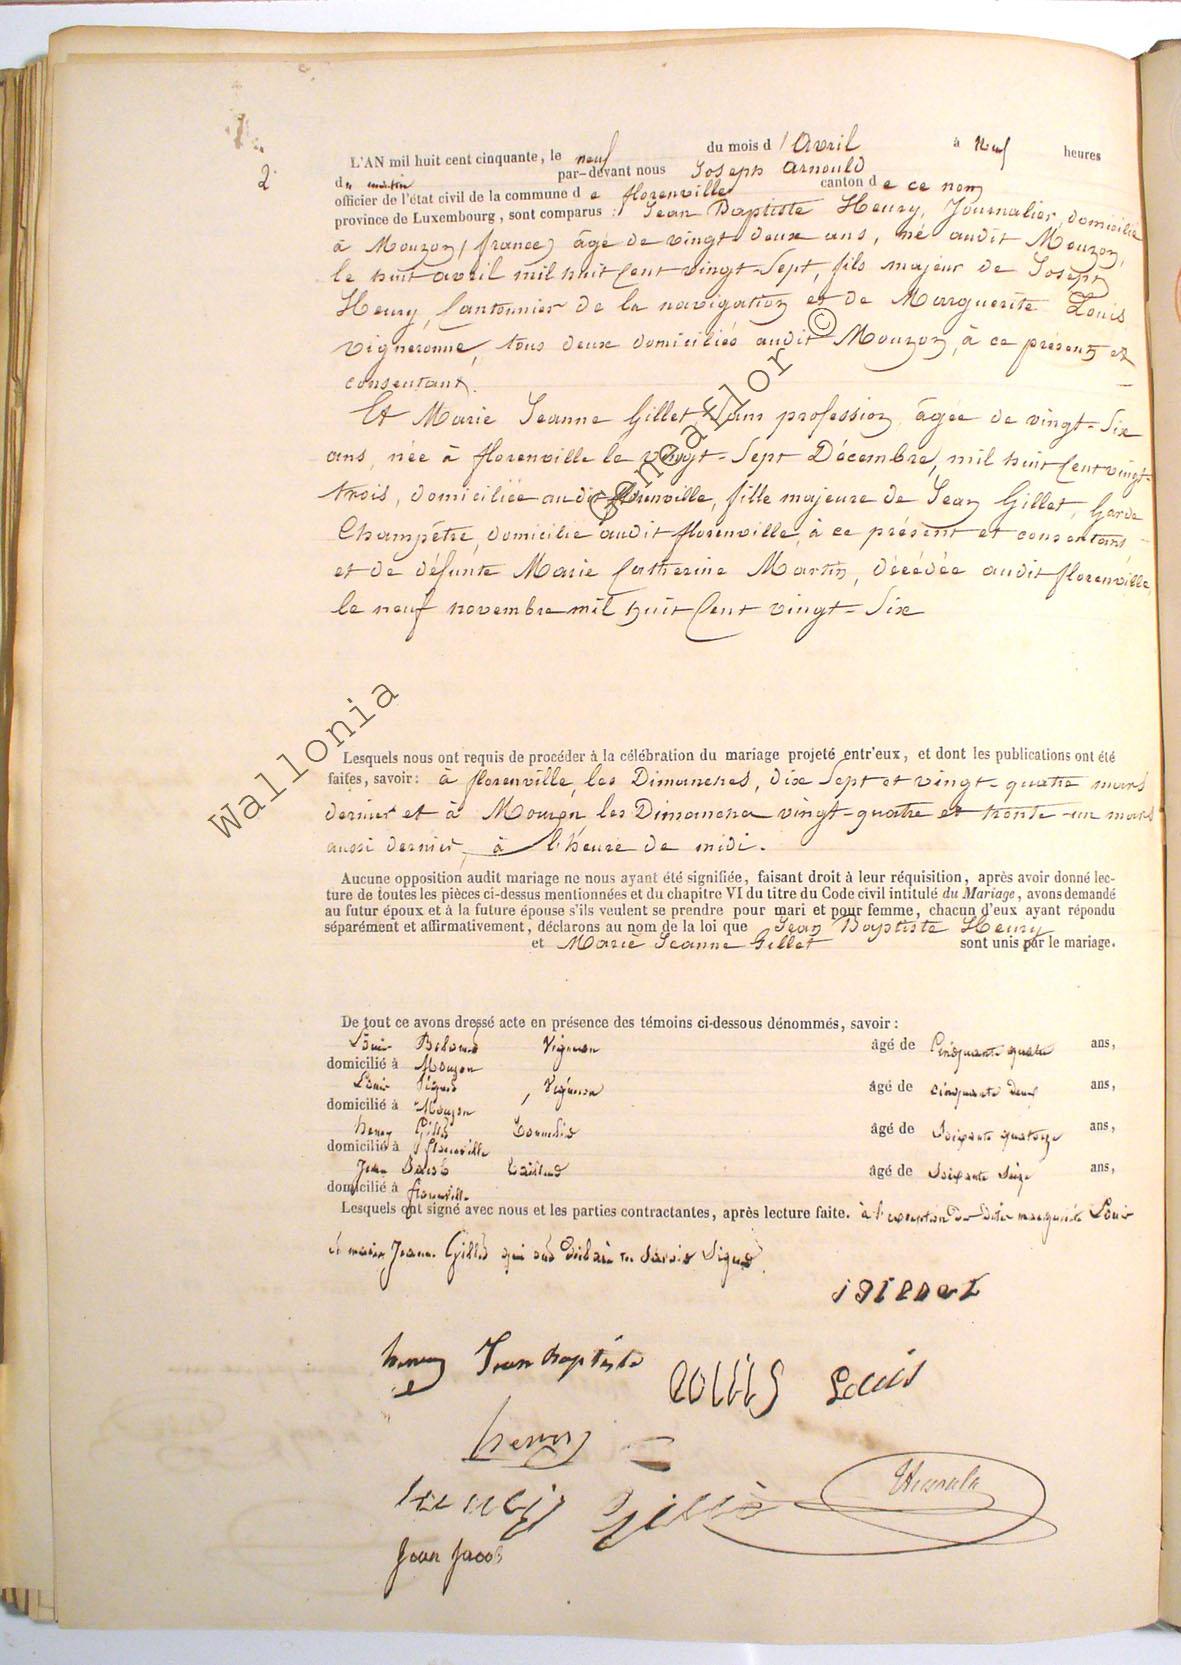 2.
L'AN mil huit cent cinquante, le neuf du mois d'Avril à neuf heures
du matin par-devant nous Joseph Arnould
officier de l'état civil de la commune de florenville canton de ce nom
province de Luxembourg, sont comparus : Jean Baptiste Henry, Journalier, domicilié
à Mouzon, (france) âgé de vingt-deux ans, né audit Mouzon,
le huit avril mil huit Cent vingt-Sept, fils majeur de Joseph
Henry, Cantonnier de la navigation et de Marguerite Louis
vigneronne, tous deux domiciliés audit Mouzon, à ce présent et
consentant.
Et Marie Jeanne Gillet, Sans profession, âgée de vingt-Six
ans, née à florenville le vingt-Sept Décembre, mil huit Cent vingt-
trois, domiciliée audit florenville, fille majeure de Jean Gillet, Garde
Champêtre, domicilié audit florenville, à ce présent et consentant,
et de défunte Marie Catherine Martin, décédée audit florenville,
le neuf novembre mil huit Cent vingt-Six
Lesquels nous ont requis de procéder à la célébration du mariage projeté entr'eux, et dont les publications ont été
faites, savoir : à florenville, les Dimanches, dix Sept et vingt-quatre mars
dernier et à Mouzon les Dimanches vingt-quatre et trente-un mars
aussi dernier, à l'heure de midi.
Aucune opposition audit mariage ne nous ayant été signifiée, faisant droit à leur réquisition, après avoir donné lec-
ture de toutes les pièces ci-dessus mentionnées et du chapitre VI du titre du Code civil intitulé du Mariage, avons demandé
au futur époux et à la future épouse s'ils veulent se prendre pour mari et pour femme, chacun d'eux ayant répondu
séparément et affirmativement, déclarons au nom de la loi que Jean Baptiste Henry
et Marie Jeanne Gillet sont unis par le mariage.
De tout ce avons dressé acte en présence des témoins ci-dessous dénommés, savoir :
Louis Vigneron âgé de Cinquante quatre ans,
domicilié à Mouzon
Louis , Vigneron âgé de cinquante deux ans,
domicilié à Mouzon
henry Gillet âgé de Soixante quatorze ans,
domicilié à florenville
Jean Jacob âgé de Soixante Seize ans,
domicilié à florenville
Lesquels ont signé avec nous et les parties contractantes, après lecture faite. à l'exception des dites marguerite Louis
et marie Jeanne Gillet qui ont déclaré ne Savoir Signer.
henry Jean baptiste Louis
henry
Gillet
Jean Jacob
Wallonia Geneaflor ©